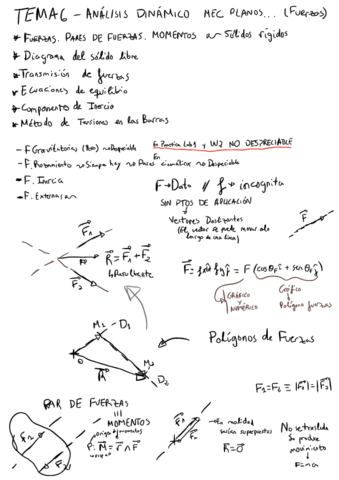 TEMA 6 - ANÁLISIS DINÁMICO MEC PLANOS... (Fuerzos)
* Fuerzas. Pares de fuerzas. Momentos Sólidos rígidos
* Diagrama del sólido libre
* Transmisión de fuerzas
* Ecuaciones de equilibrio
* Componente de Inercia
* Método de Tensiones en las Barras
- F Gravitatorias no Despreciable
En Practica Lab 1 y W2 NO DESPRECIABLE
- F. Rozamiento no Siempre hay no
- F. Inercia
- F. Externas
F → Dato // f → incognita
SIN PTOS DE APLICACIÓN
Vectores Deslizantes
(El vector se puede mover a lo largo de una línea)
F
F1
R
F2
R = F1 + F2
Resultante
F = fxi + fyj = F (cosθFi + senθFj)
GRÁFICO
NUMÉRICO
Gráfico
Polígono fuerzas
M1 D1
M2
D2
R
Polígonos de Fuerzas
F1 = F2 ≡ |F1| = |F2|
PAR DE FUERZAS
MOMENTOS
M = r ∧ F
F1
F2
En realidad
superpuestos
R = 0
No se traslada
Se produce
movimiento